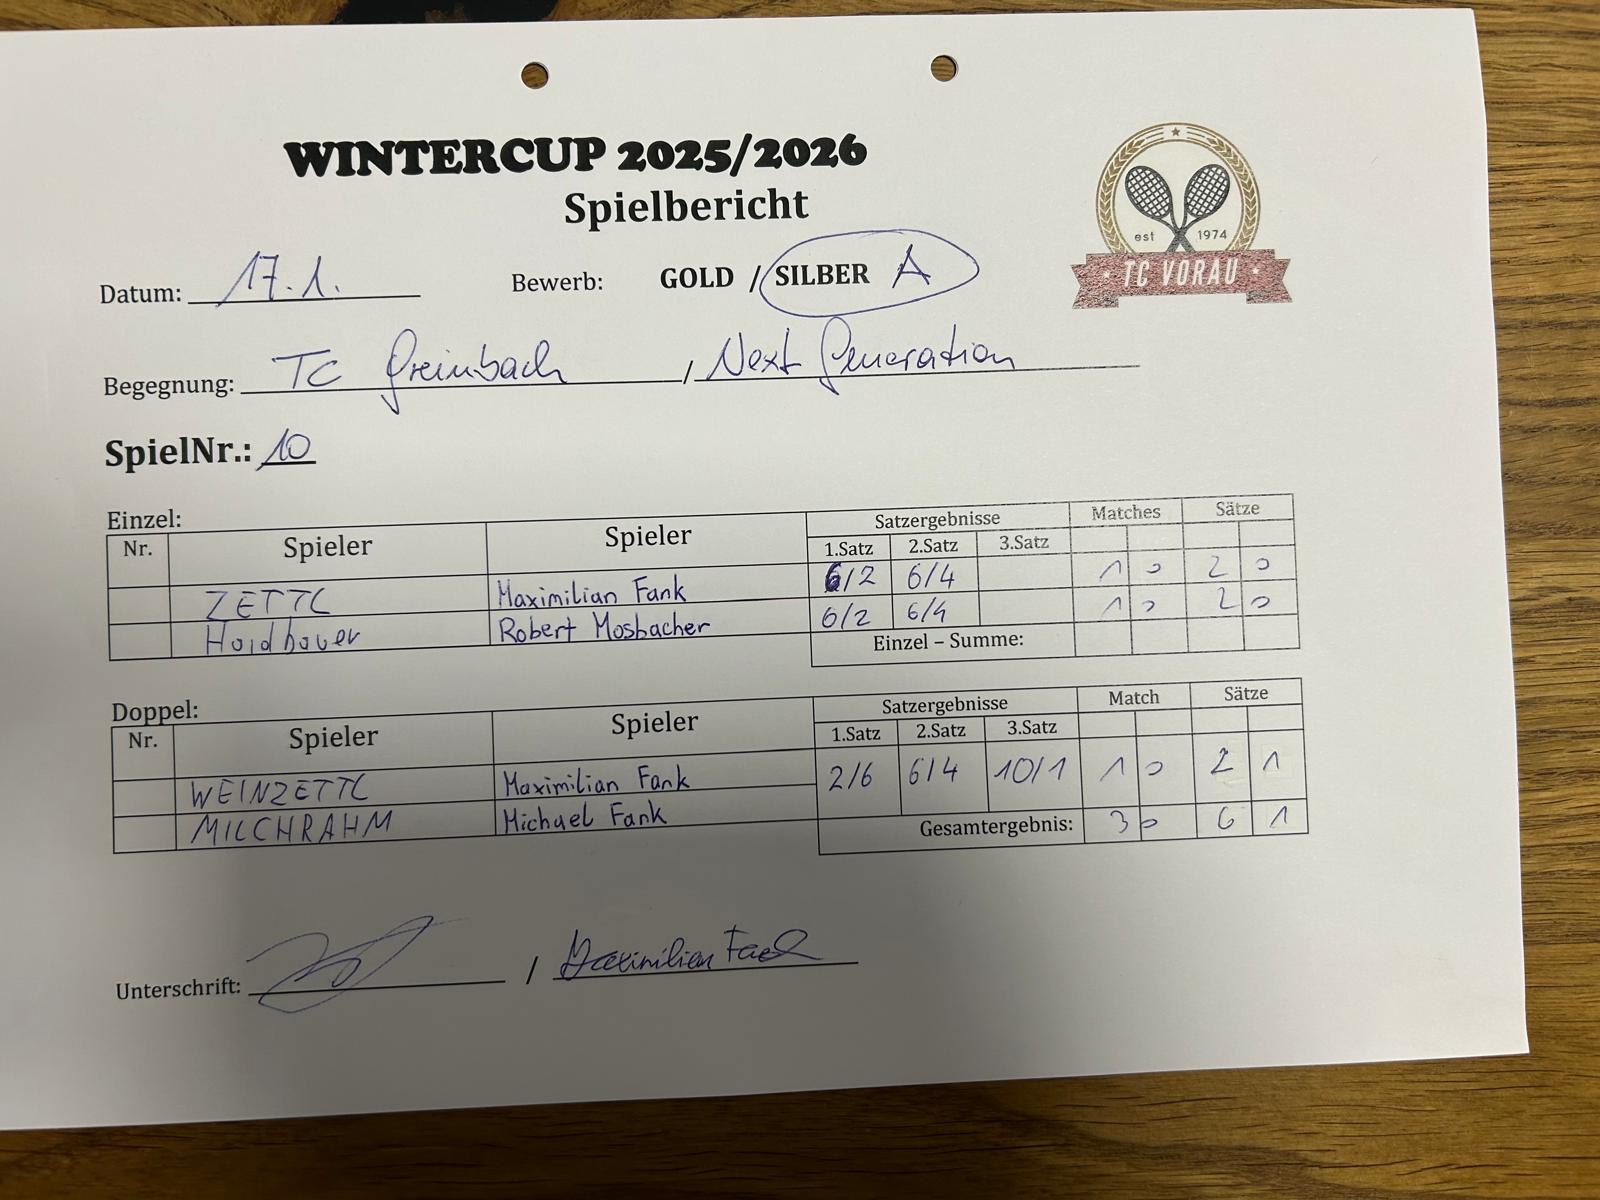 WINTERCUP 2025/2026
Spielbericht
est 1974
TC VORAU
Datum: 17.1. Bewerb: GOLD / SILBER A
Begegnung: TC Greinbach / Next Generation
SpielNr.: 10
Einzel:
Nr. Spieler Spieler Satzergebnisse Matches Sätze
1.Satz 2.Satz 3.Satz
ZETTL Maximilian Fank 6/2 6/4 1 0 2 0
Haidbauer Robert Mosbacher 6/2 6/4 1 0 2 0
Einzel – Summe:
Doppel:
Nr. Spieler Spieler Satzergebnisse Match Sätze
1.Satz 2.Satz 3.Satz
WEINZETTL Maximilian Fank 2/6 6/4 10/1 1 0 2 1
MILCHRAHM Michael Fank
Gesamtergebnis: 3 0 6 1
Unterschrift: / Maximilian Fank